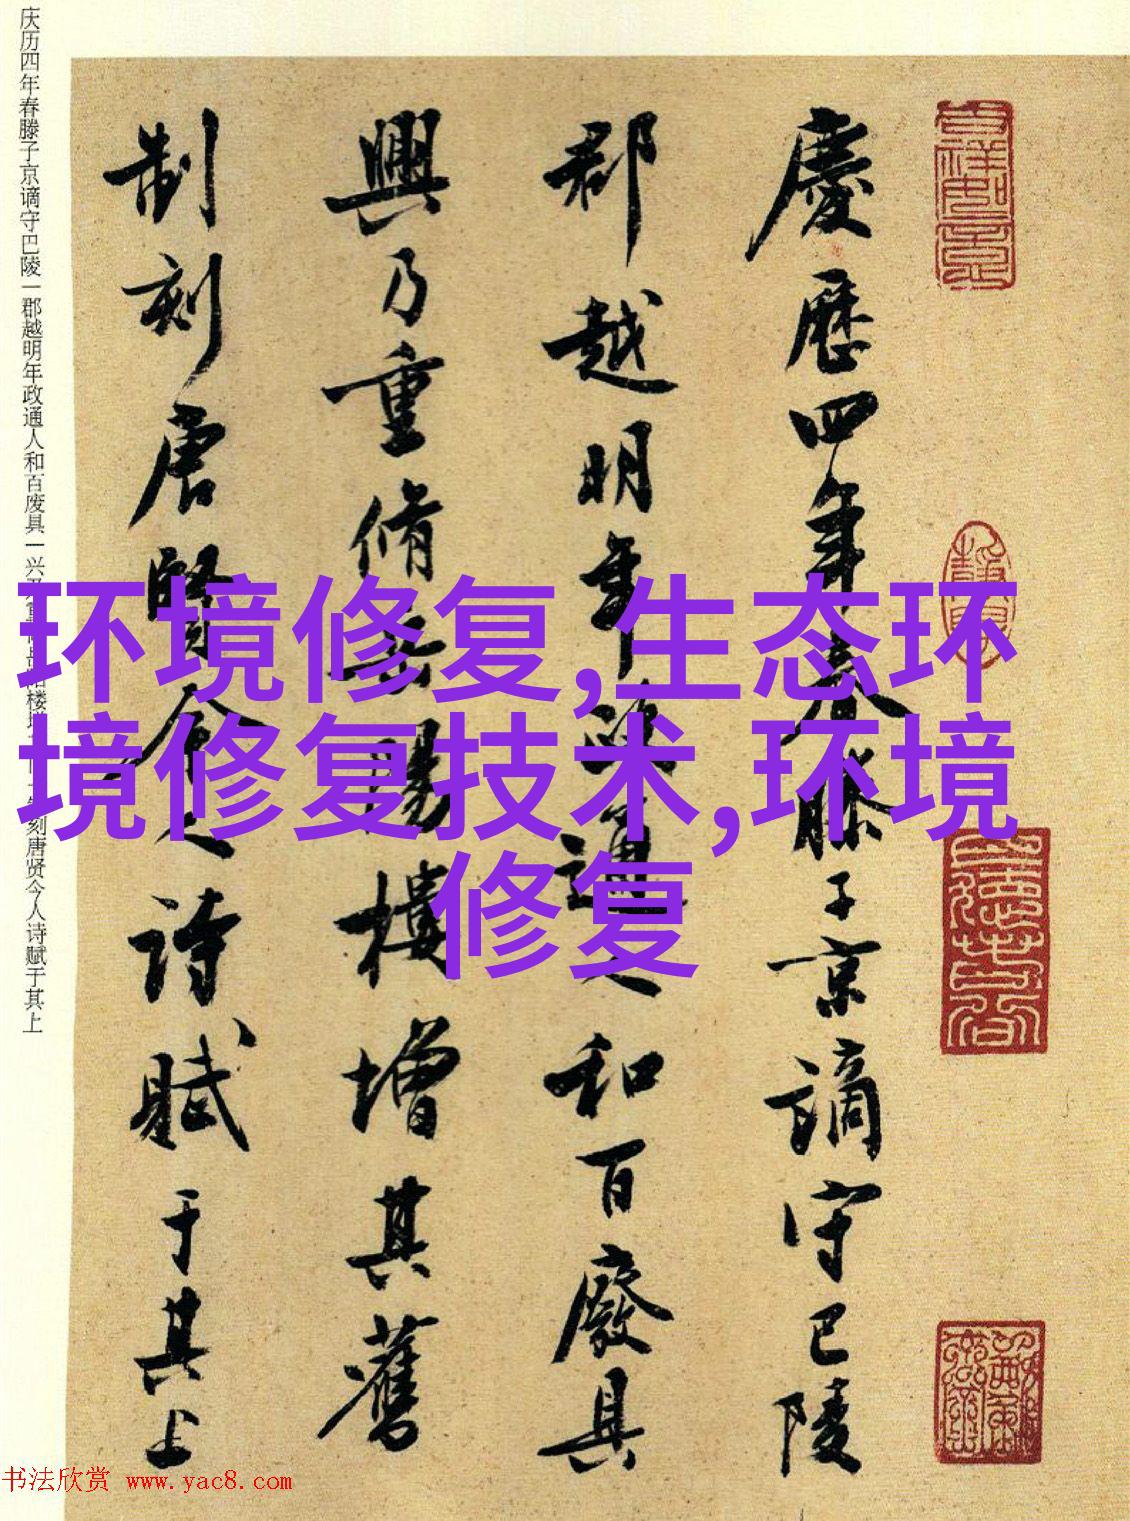 慶歷四年春滕子京謫守巴陵
郡越明年政通人和百廢具
興乃重脩岳陽樓增其舊
制刻唐賢今人詩賦于其上
庆历四年春滕子京谪守巴陵一郡越明年政通人和百废具一兴乃重
楼增
刻唐贤今人诗赋于其上
环境修复,生态环
境修复技术,环境
修复
书法欣赏 www.yac8.com